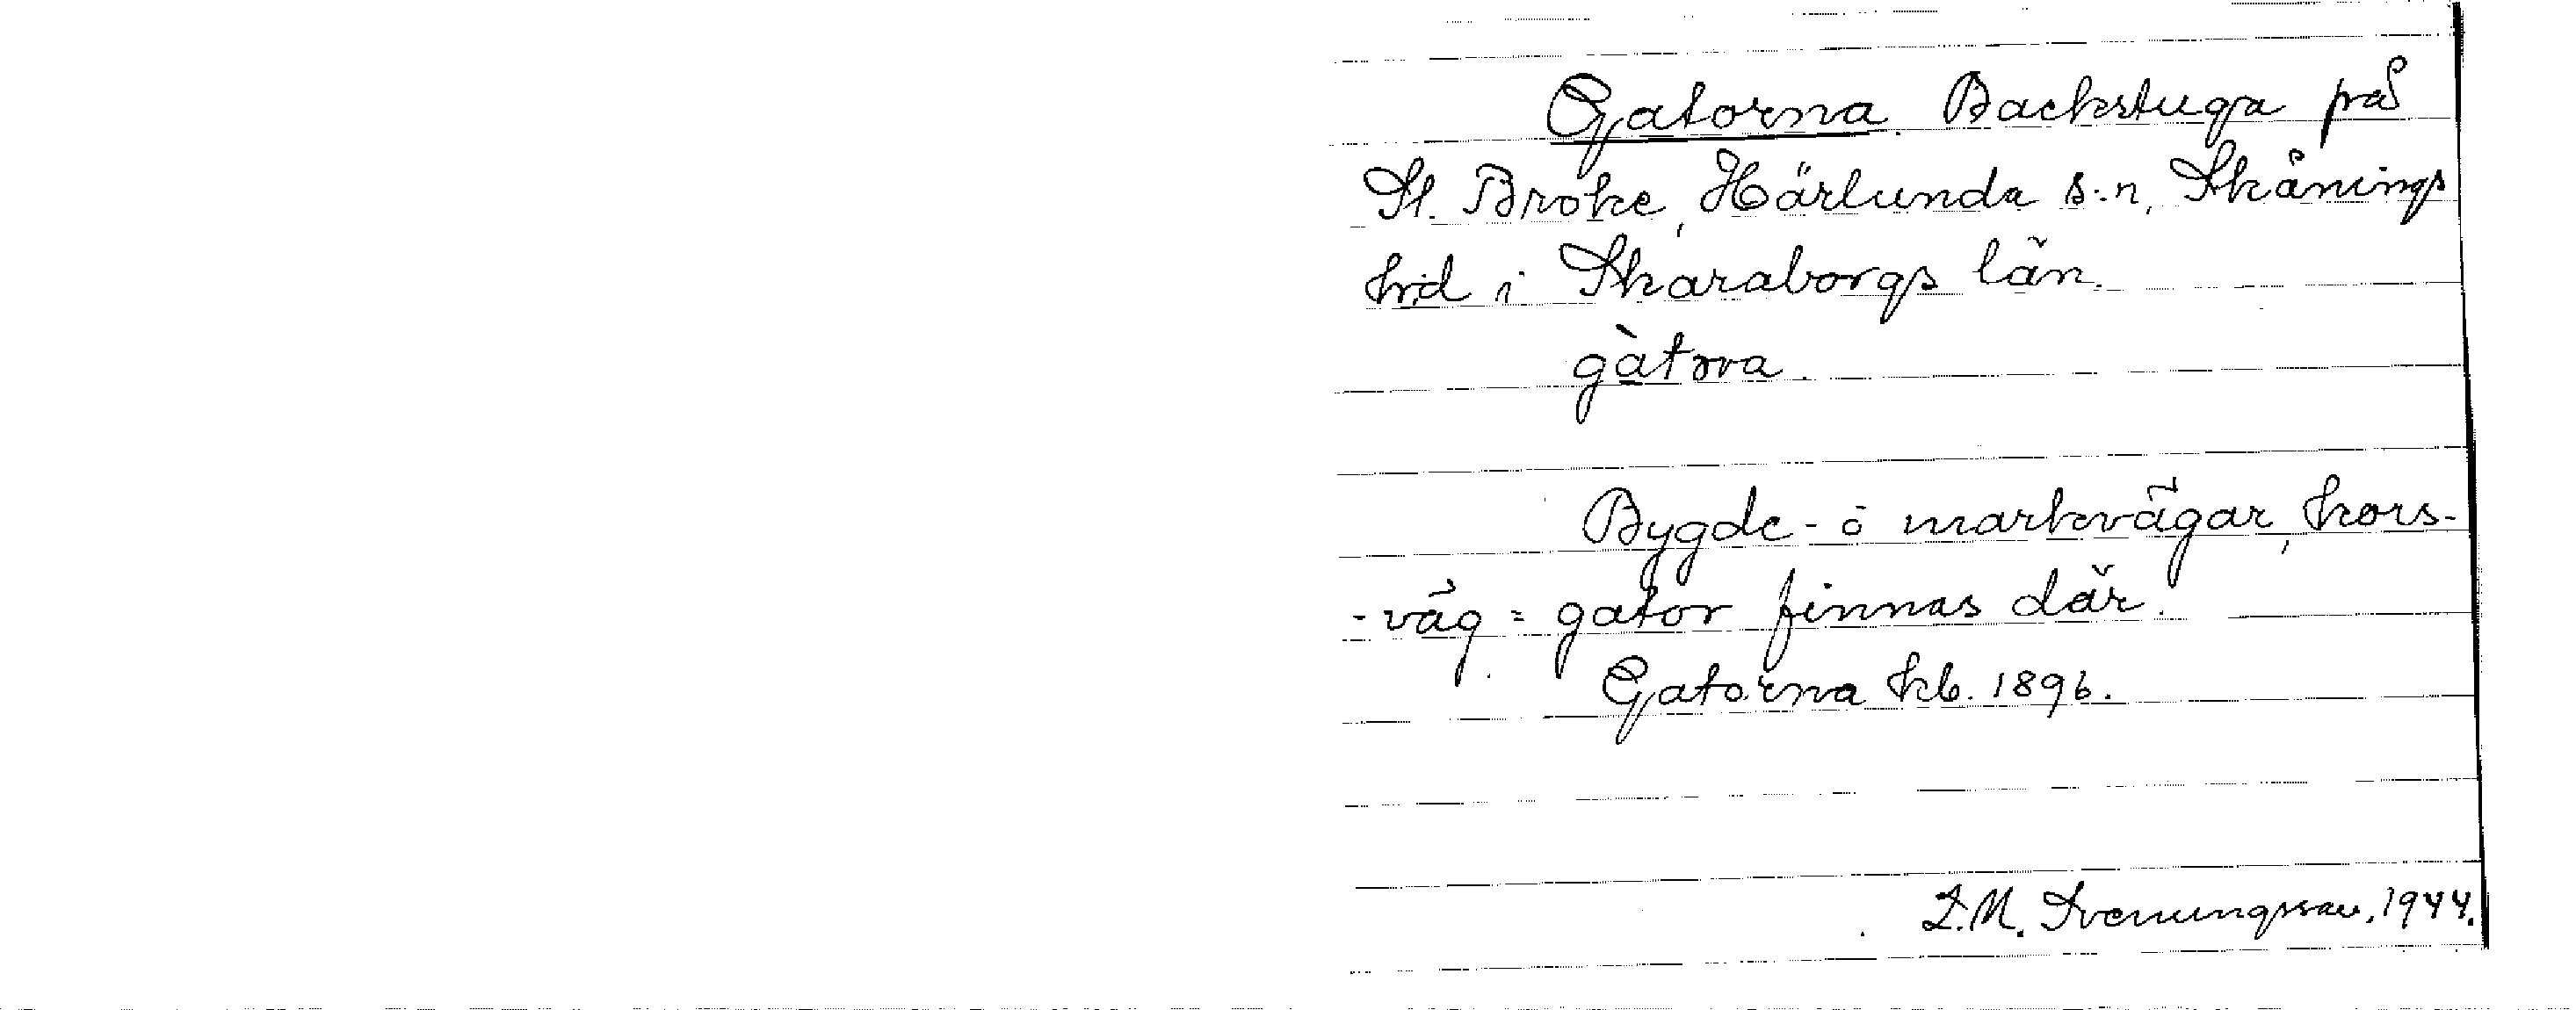 Gatorna. Backstuga på
St. Broke, Härlunda s:n, Skånings
hrd i Skaraborgs län.
gàtꝛna.
Bygde- o markvägar, kors-
-väg = gator finnas där.
Gatorna kb. 1896.
L.M. Svenungsson, 1944.